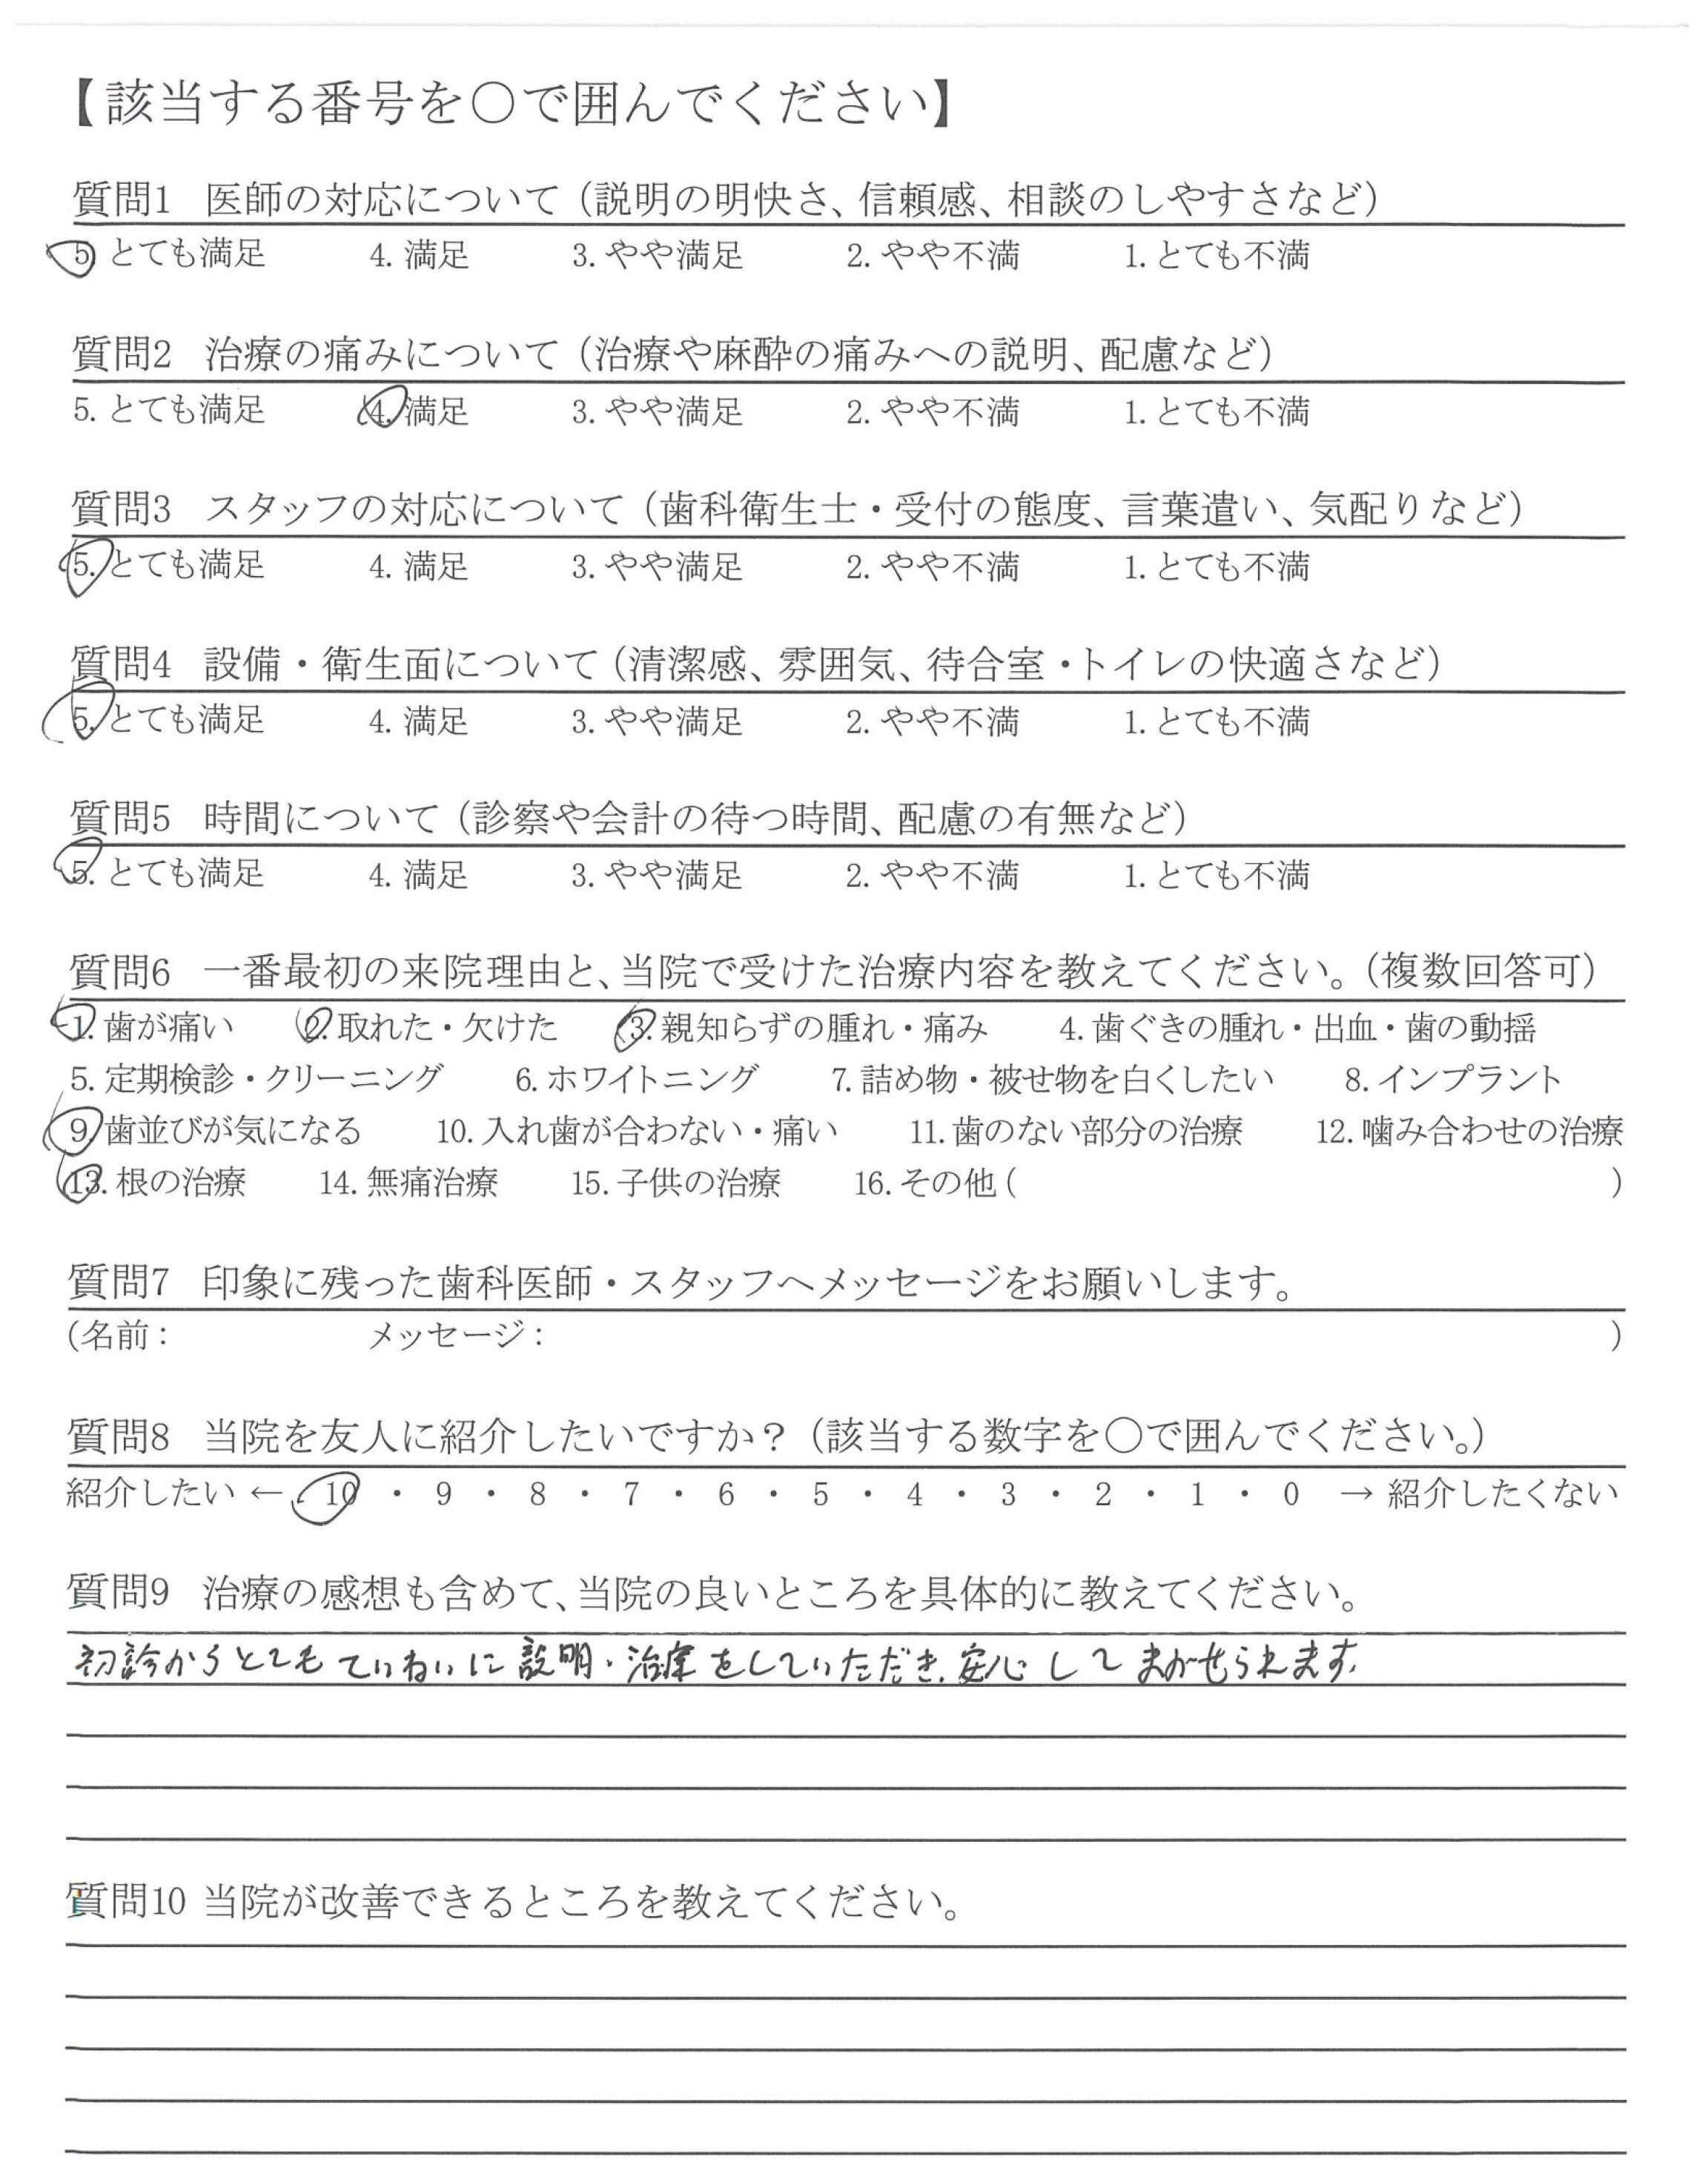 【該当する番号を〇で囲んでください】
質問1 医師の対応について（説明の明快さ、信頼感、相談のしやすさなど）
5. とても満足 4. 満足 3. やや満足 2. やや不満 1. とても不満
質問2 治療の痛みについて（治療や麻酔の痛みへの説明、配慮など）
5. とても満足 4. 満足 3. やや満足 2. やや不満 1. とても不満
質問3 スタッフの対応について（歯科衛生士・受付の態度、言葉遣い、気配りなど）
5. とても満足 4. 満足 3. やや満足 2. やや不満 1. とても不満
質問4 設備・衛生面について（清潔感、雰囲気、待合室・トイレの快適さなど）
5. とても満足 4. 満足 3. やや満足 2. やや不満 1. とても不満
質問5 時間について（診察や会計の待つ時間、配慮の有無など）
5. とても満足 4. 満足 3. やや満足 2. やや不満 1. とても不満
質問6 一番最初の来院理由と、当院で受けた治療内容を教えてください。（複数回答可）
1. 歯が痛い 2. 取れた・欠けた 3. 親知らずの腫れ・痛み 4. 歯ぐきの腫れ・出血・歯の動揺
5. 定期検診・クリーニング 6. ホワイトニング 7. 詰め物・被せ物を白くしたい 8. インプラント
9. 歯並びが気になる 10. 入れ歯が合わない・痛い 11. 歯のない部分の治療 12. 噛み合わせの治療
13. 根の治療 14. 無痛治療 15. 子供の治療 16. その他（ ）
質問7 印象に残った歯科医師・スタッフへメッセージをお願いします。
（名前： メッセージ： ）
質問8 当院を友人に紹介したいですか？（該当する数字を〇で囲んでください。）
紹介したい ← 10 ・ 9 ・ 8 ・ 7 ・ 6 ・ 5 ・ 4 ・ 3 ・ 2 ・ 1 ・ 0 → 紹介したくない
質問9 治療の感想も含めて、当院の良いところを具体的に教えてください。
初診からとてもていねいに説明・治療をしていただき、安心してまかせられます。
質問10 当院が改善できるところを教えてください。